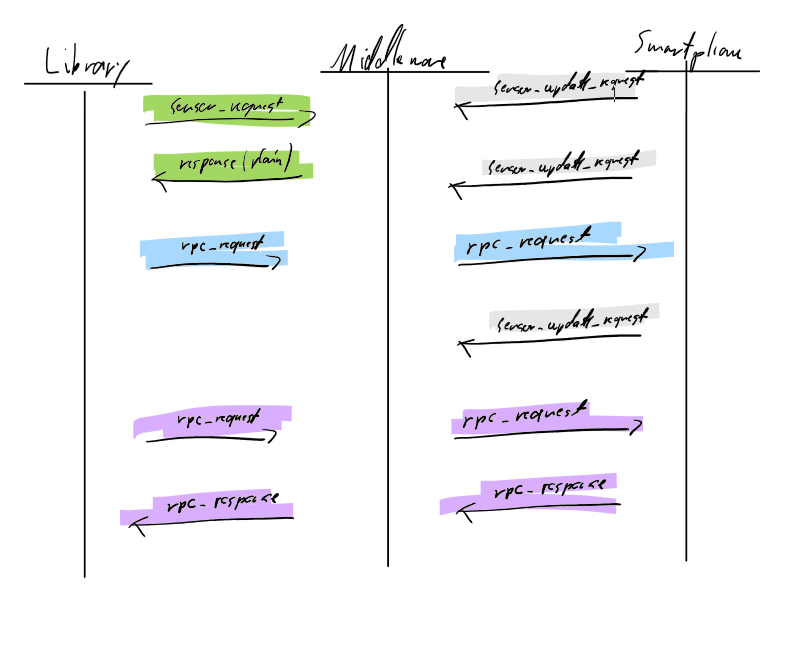 Library
Middleware
Smartphone
sensor_request
sensor_update_request
response (plain)
sensor_update_request
rpc_request
rpc_request
sensor_update_request
rpc_request
rpc_request
rpc_response
rpc_response